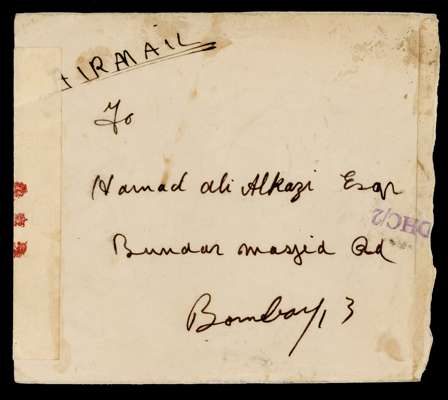 AIRMAIL
To
Hamad ali Alkazi Esqr
Bundar masjid Rd
Bombay, 3
DHC/2